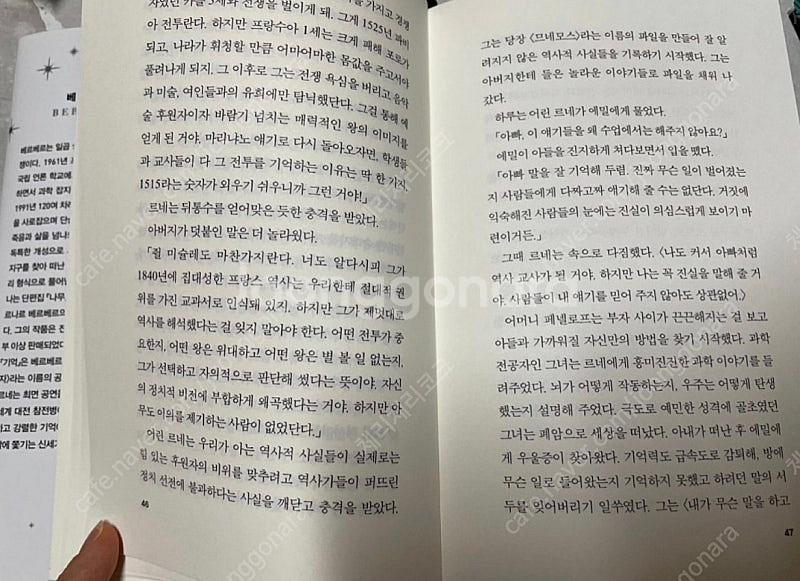 베
BER
베르베르는 일곱 살
쟁이다. 1961년
국립 언론 학교에
하면서 과학 잡지
1991년 120여 차례
을 사로잡으며 단숨
죽음과 삶을 넘나
독특한 개성으로
지구를 찾아 떠난
리 형식으로 풀어
나는 단편집 『나무
르나르 베르베르의
다. 그의 작품은 전
부 이상 판매되었다
『기억』은 베르베르
지〉라는 이름의 공
르네는 최면 공연을
세계 대전 참전병이
고 강렬한 기억이
에 쫓기는 신세가
를 가지고 경쟁
자였던 카를 5세와 전쟁을 벌이게 돼. 그게 1525년 파비
아 전투란다. 하지만 프랑수아 1세는 크게 패해 포로가
되고, 나라가 휘청할 만큼 어마어마한 몸값을 주고서야
풀려나게 되지. 그 이후로 그는 전쟁 욕심을 버리고 음악
과 미술, 여인들과의 유희에만 탐닉했단다. 그걸 통해 예
술 후원자이자 바람기 넘치는 매력적인 왕의 이미지를
얻게 된 거야. 마리냐노 얘기로 다시 돌아오자면, 학생들
과 교사들이 다 그 전투를 기억하는 이유는 딱 한 가지,
1515라는 숫자가 외우기 쉬우니까 그런 거야!」
르네는 뒤통수를 얻어맞은 듯한 충격을 받았다.
아버지가 덧붙인 말은 더 놀라웠다.
「쥘 미슐레도 마찬가지란다. 너도 알다시피 그가
1840년에 집대성한 프랑스 역사는 우리한테 절대적 권
위를 가진 교과서로 인식돼 있지. 하지만 그가 제멋대로
역사를 해석했다는 걸 잊지 말아야 한다. 어떤 전투가 중
요한지, 어떤 왕은 위대하고 어떤 왕은 별 볼 일 없는지,
그가 선택하고 자의적으로 판단해 썼다는 뜻이야. 자신
의 정치적 비전에 부합하게 왜곡했다는 거야. 하지만 아
무도 이의를 제기하는 사람이 없었단다.」
어린 르네는 우리가 아는 역사적 사실들이 실제로는
힘 있는 후원자의 비위를 맞추려고 역사가들이 퍼뜨린
정치 선전에 불과하다는 사실을 깨닫고 충격을 받았다.
46
그는 당장 〈므네모스〉라는 이름의 파일을 만들어 잘 알
려지지 않은 역사적 사실들을 기록하기 시작했다. 그는
아버지한테 들은 놀라운 이야기들로 파일을 채워 나
갔다.
하루는 어린 르네가 에밀에게 물었다.
「아빠, 이 얘기들을 왜 수업에서는 해주지 않아요?」
에밀이 아들을 진지하게 쳐다보면서 입을 뗐다.
「아빠 말을 잘 기억해 두렴. 진짜 무슨 일이 벌어졌는
지 사람들에게 다짜고짜 얘기해 줄 수는 없단다. 거짓에
익숙해진 사람들의 눈에는 진실이 의심스럽게 보이기 마
련이거든.」
그때 르네는 속으로 다짐했다. 〈나도 커서 아빠처럼
역사 교사가 될 거야. 하지만 나는 꼭 진실을 말해 줄 거
야. 사람들이 내 얘기를 믿어 주지 않아도 상관없어.〉
어머니 페넬로프는 부자 사이가 끈끈해지는 걸 보고
아들과 가까워질 자신만의 방법을 찾기 시작했다. 과학
전공자인 그녀는 르네에게 흥미진진한 과학 이야기를 들
려주었다. 뇌가 어떻게 작동하는지, 우주는 어떻게 탄생
했는지 설명해 주었다. 극도로 예민한 성격에 골초였던
그녀는 폐암으로 세상을 떠났다. 아내가 떠난 후 에밀에
게 우울증이 찾아왔다. 기억력도 급속도로 감퇴해, 방에
무슨 일로 들어왔는지 기억하지 못했고 하려던 말의 서
두를 잊어버리기 일쑤였다. 그는 〈내가 무슨 말을 하고
47